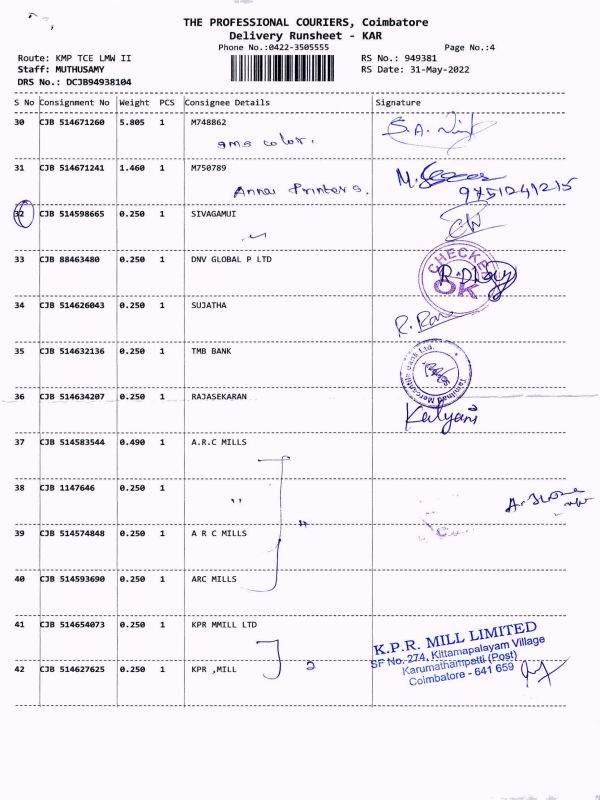 THE PROFESSIONAL COURIERS, Coimbatore
Delivery Runsheet - KAR
Phone No.:0422-3505555
Page No.:4
Route: KMP TCE LMW II
RS No.: 949381
Staff: MUTHUSAMY
RS Date: 31-May-2022
DRS No.: DCJB94938104
S No Consignment No Weight PCS Consignee Details Signature
30 CJB 514671260 5.805 1 M748862
sms color.
31 CJB 514671241 1.460 1 M750789
Anna Printers.
9751241215
32 CJB 514598665 0.250 1 SIVAGAMUI
33 CJB 88463480 0.250 1 DNV GLOBAL P LTD
CHECKED
OK
34 CJB 514626043 0.250 1 SUJATHA
35 CJB 514632136 0.250 1 TMB BANK
Tamilnad Mercantile Bank Ltd.
36 CJB 514634207 0.250 1 RAJASEKARAN
Kalyani
37 CJB 514583544 0.490 1 A.R.C MILLS
38 CJB 1147646 0.250 1
39 CJB 514574848 0.250 1 A R C MILLS
40 CJB 514593690 0.250 1 ARC MILLS
41 CJB 514654073 0.250 1 KPR MMILL LTD
K.P.R. MILL LIMITED
SF No. 274, Kittamapalayam Village
Karumathampatti (Post)
Coimbatore - 641 659
42 CJB 514627625 0.250 1 KPR ,MILL
2